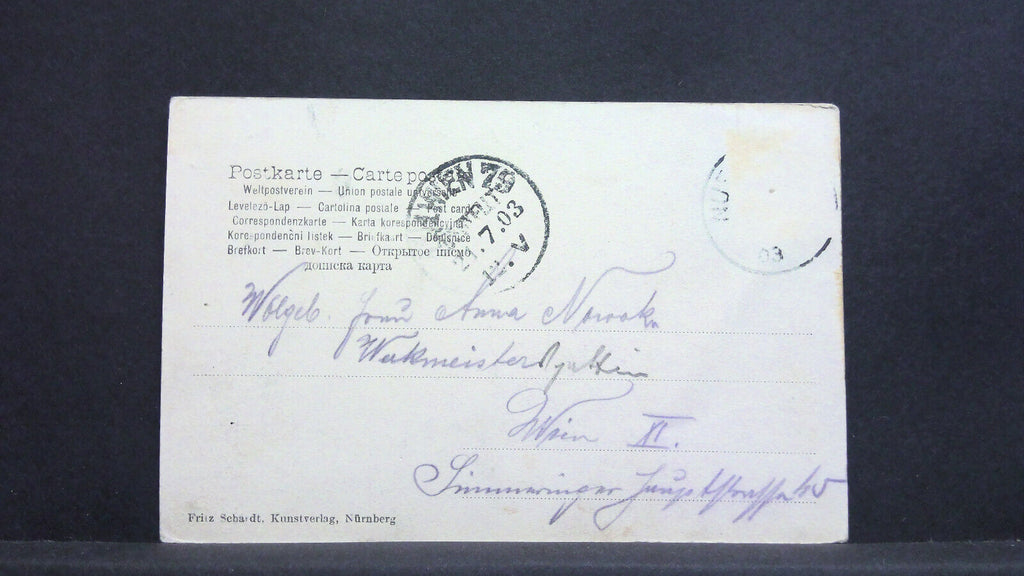 Postkarte — Carte po
Weltpostverein — Union postale universelle
Levelező-Lap — Cartolina postale — Post card
Correspondenzkarte — Karta korespondencyjna
Korespondenční lístek — Briefkaart — Dopisnice
Brefkort — Brev-Kort — Открытое письмо
дописна карта
WIEN 79
7.03
V
NÜR
03
Wolgeb. Frau Anna Nowak
Werkmeistersgattin
Wien XI.
Simmeringer Hauptstrasse
Fritz Schardt, Kunstverlag, Nürnberg